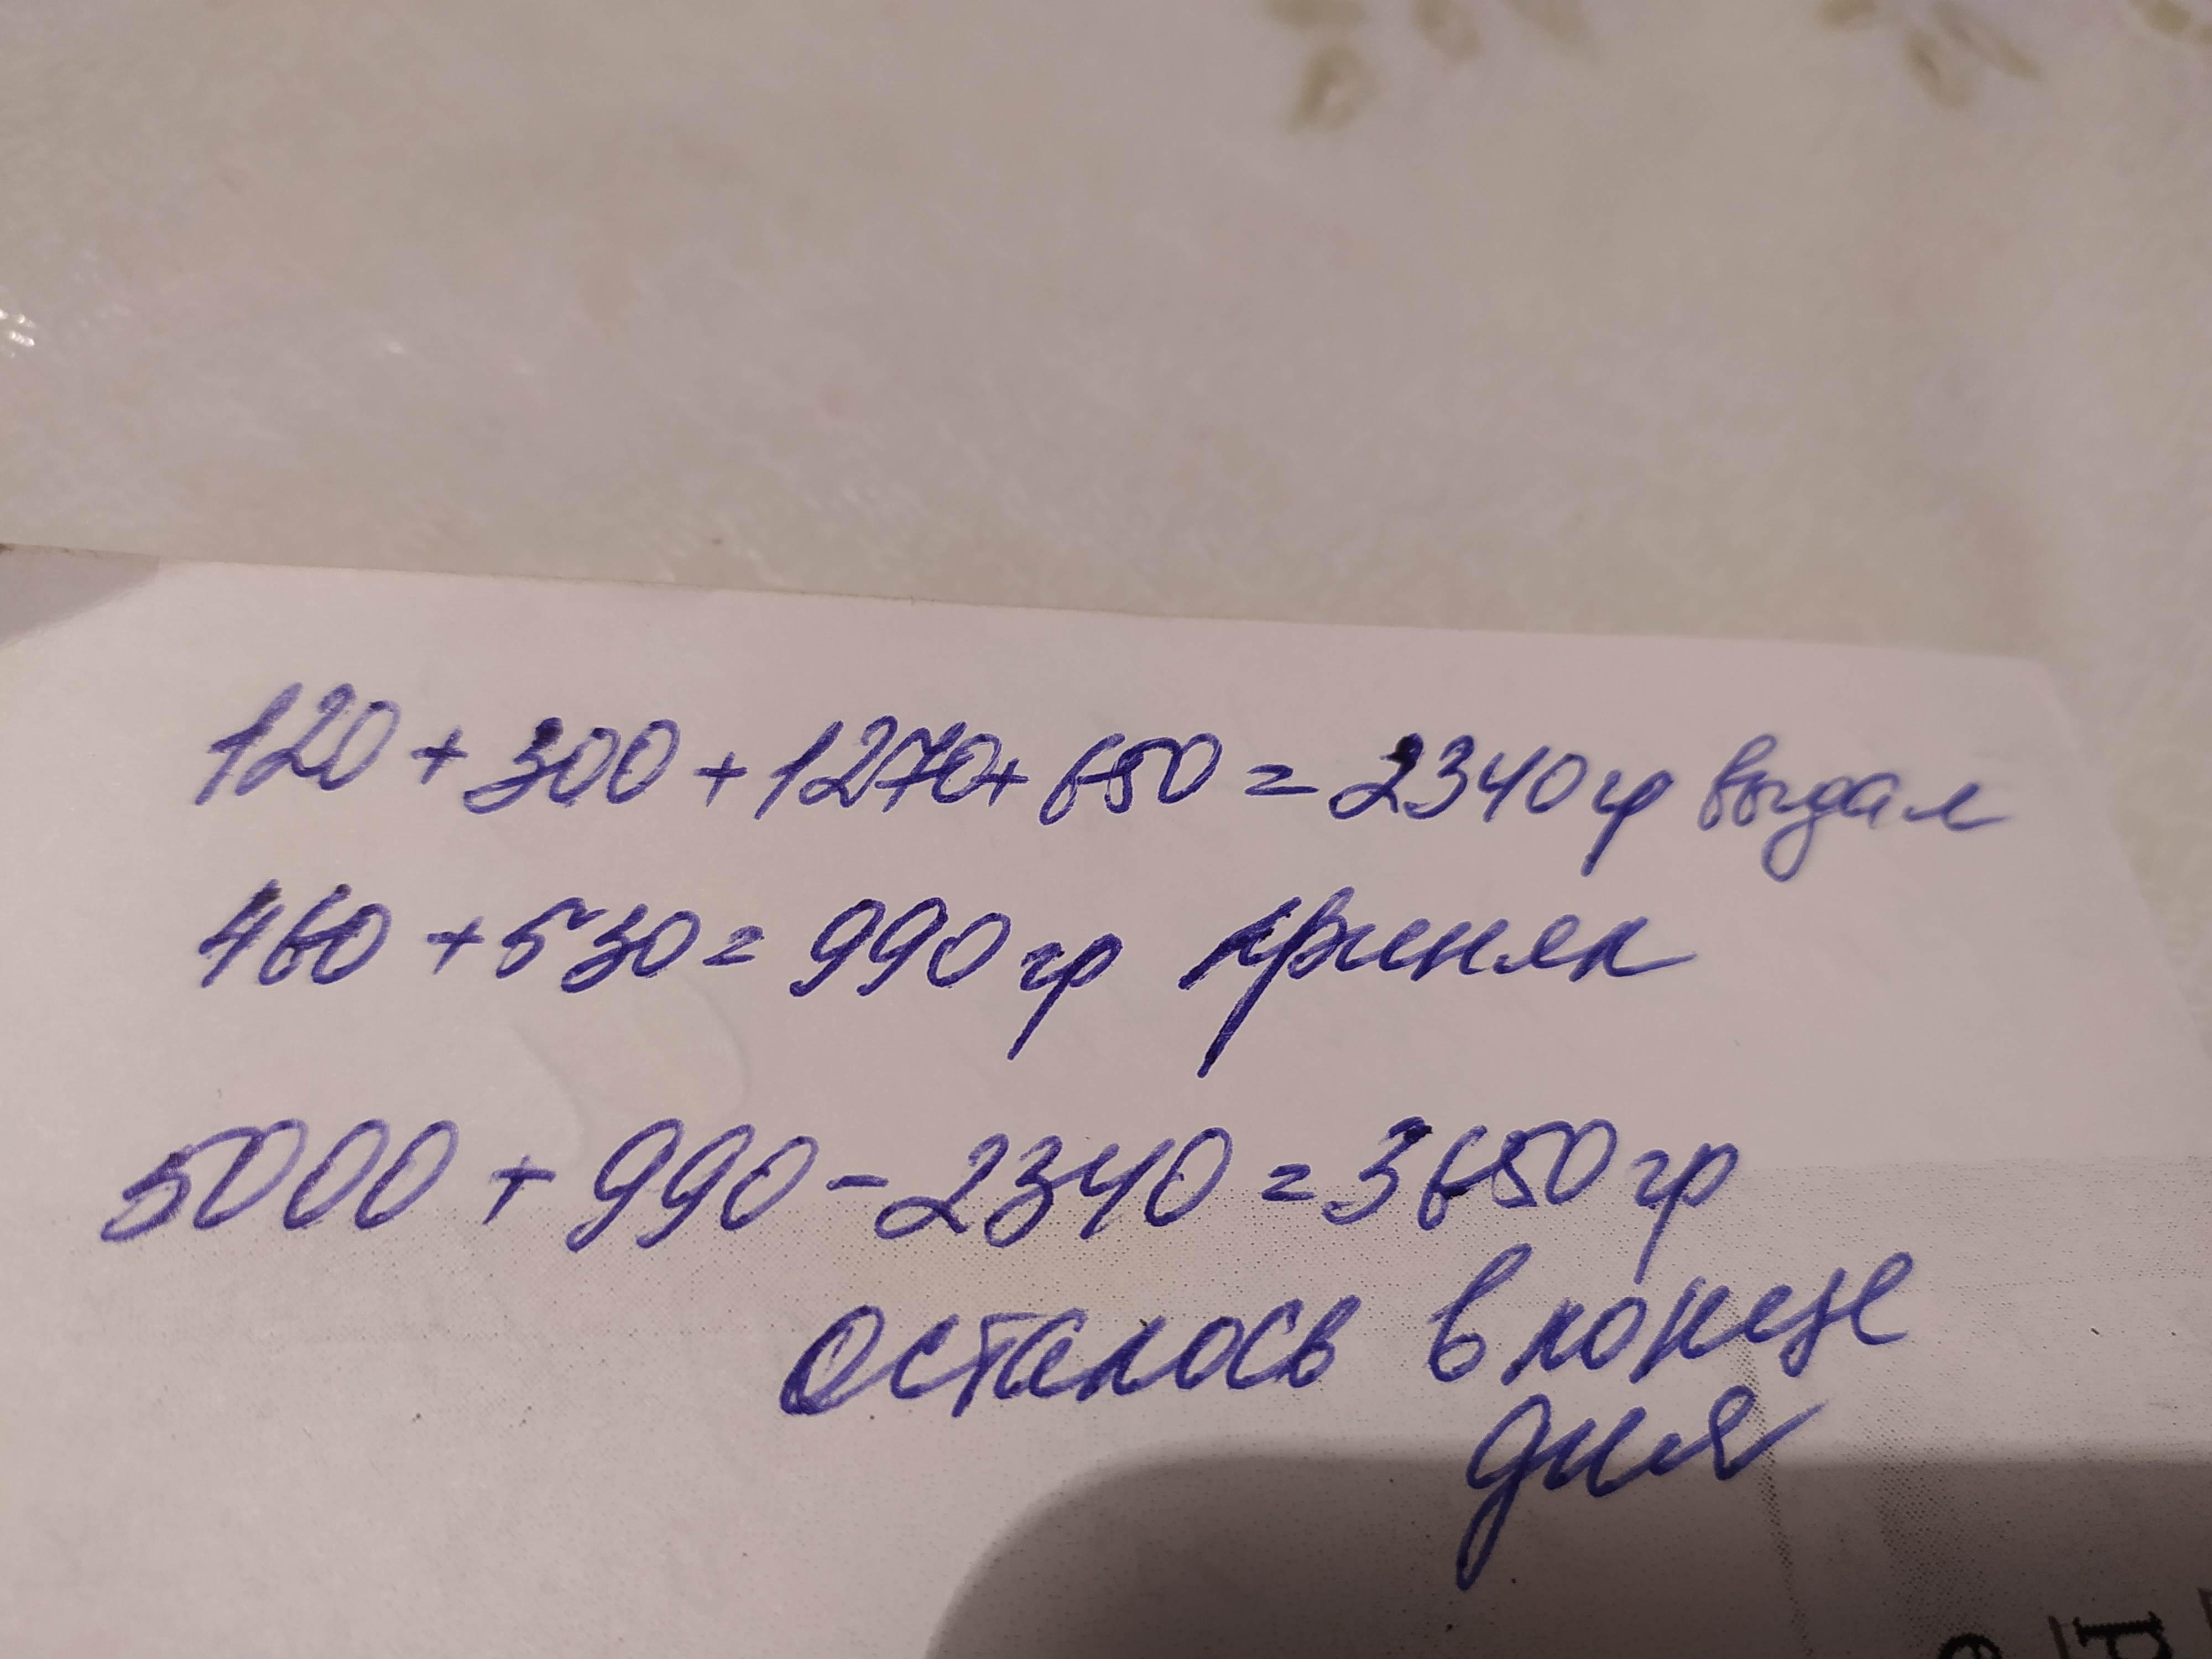 120 + 300 + 1270 + 650 = 2340 гр выдал
460 + 530 = 990 гр принял
5000 + 990 - 2340 = 3650 гр
осталось в конце
дня